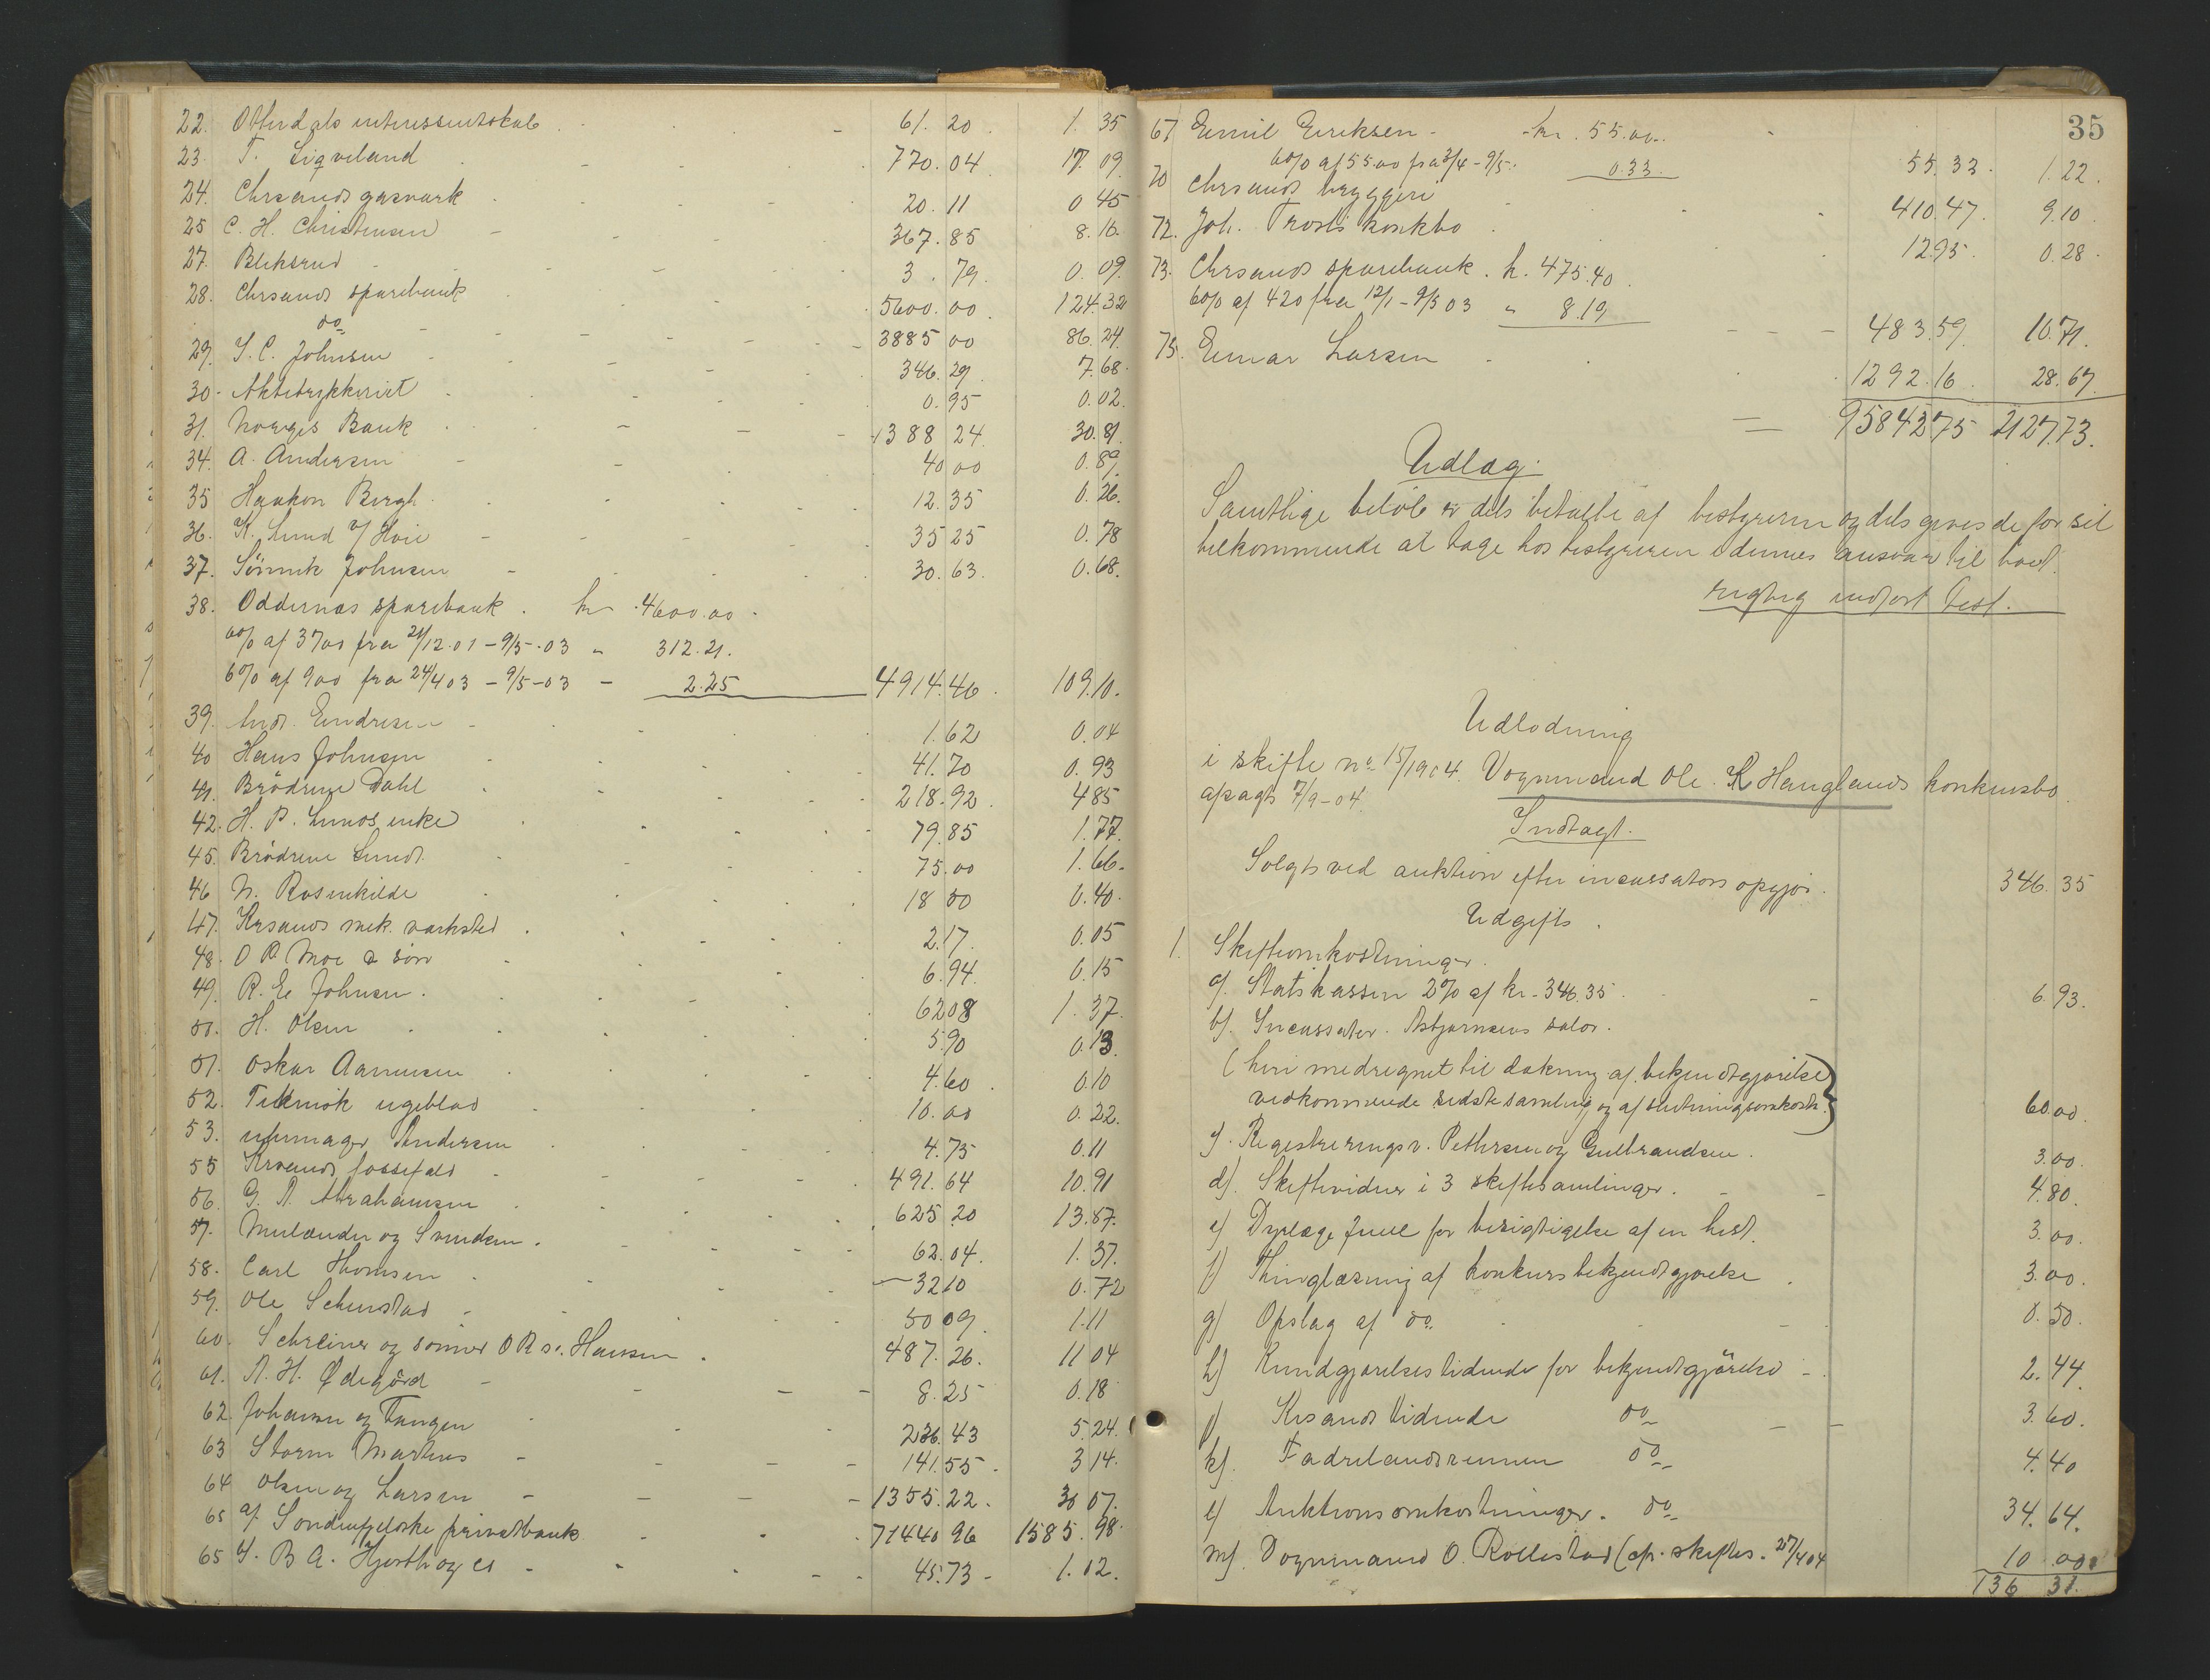 22. Otterdals interessentskab 61.20 1.35
23 T. Ligveland 770.04 17.09
24. Chrsands gasværk 20.11 0 45
25 C. H. Christensen 367.85 8.16
27. Bleksrud 3.79 0.09
28. Chrsands sparebank 5600.00 124.32
do 3885 00 86.24
29. S. C. Johnsen 346.29 7.68
30. Aktietrykkeriet 0.95 0.02
31. Norges Bank 1388 24 30.81
34. A. Andersen 40 00 0.89
35 Haakon Bergh 12.35 0.26
36. K. Lund v/ Hoie 35 25 0.78
37. Sönnik Johnsen 30.63 0.68
38. Oddernæs sparebank. kr 4600.00
6% af 3700 fra 21/12.01 - 9/5-03 " 312.21.
6% af 900 fra 24/4 03 - 9/5-03 - 2.25 4914.46 109.10.
39. Endresen 1.62 0.04
40 Hans Johnsen 41.70 0.93
41. Brödrene Dahl 218.92 4 85
42. H. P. Lunds enke 79.85 1.77
45. Brödrene Lund 75.00 1.66
46 N. Rosenkilde 18 00 0.40
47. Krsands mek. værksted 2.17 0.05
48. O P Moe & sön 6.94 0.15
49. R. E. Johnsen. 62 08 1.37
50. H. Olsen 5.90 0.13
51. Oskar Aanensen 4.60 0.10
52. Teknisk ugeblad 10.00 0.22
53. uhrmager Andersen 4.75 0.11
55 Krsands fossefald 491.64 10.91
56. G. A. Abrahamsen 625.20 13.87
57. Melander og Svendsen. 62.04. 1.37.
58. Carl Thomsen 32 10 0.72
59. Ole Schinstad 50 09 1.11
60. Schreiner og sönner O R s. Hansen 487.26. 11 04
61. A. H. Ødegård 8.25 0.18
62. Johansen og Tangen 236.43 5.24
63 Storm Martens 141.55 3 14
64 Olsen og Larsen 1355.22 30 07.
65 af Söndenfjeldske privatbank 71440 96 1585.98
65 S. B A. Hjorth og co 45.73 1.02.
35
67 Emil Eriksen - kr. 55.00
6% af 55.00 fra 3/4 - 9/5. 0.33 55.33 1.22
70 Chrsands bryggeri 410.47. 9.10
72. Joh. Trosts konkbo 12.95 0.28
73. Chrsands sparebank. k. 475.40
6% af 420 fra 12/1 - 9/5 03 " 8.19 483.59 10.71.
75. Einar Larsen 1292.16 28.67
95842 75 2127.73.
Udlæg.
Samtlige belöb er dels betalte af bestyreren og dels gives de for sit
vedkommende at tage hos bestyreren i dennes ansvar til bort.
rigtig indfort test.
Udlodning
i skifte no 15/1904. Vognmand Ole K Hauglands konkursbo
afsagt 7/9-04.
Indtægt.
Solgts ved auktion efter incassators opgjør. 346.35
Udgifts.
1. Skifteomkostninger.
a). Statskassen 2% af kr. 346.35 6.93.
b). Incassator. Asbjørnsens salær.
(heri medregnet til dækning af bekjendtgjørelse
vedkommende sidste samling og af slutningsomkostn.) 60.00
c). Registreringsv. Pettersen og Gulbrandsen. 3.00.
d). Skiftevidner i 3 skiftesamlinger. 4.80.
e) Dyrlæge Juell for besigtigelse af en hest. 3.00.
f) Thinglæsning af konkurs bekjendtgjørelse 3.00.
g) Opslag af do. 0.50.
h) Kundgjørelsestidende for bekjendtgjørelse 2.44.
i) Krsands tidende do 3.60.
k). Fædrelandsvennen do 4.40
l) Auktionsomkostninger. do 34.64.
m). Vognmand O. Rollestad (cfr. skiftes. 27/4 04 10 00
136 31.